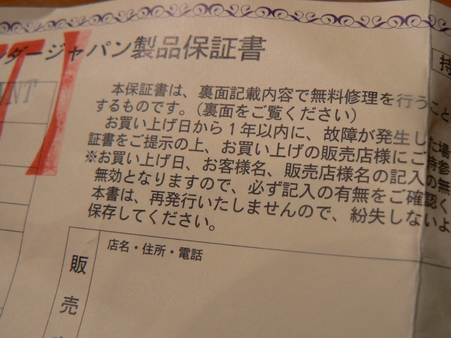 ダージャパン製品保証書
持
NT
本保証書は、裏面記載内容で無料修理を行うこと
するものです。(裏面をご覧ください)
お買い上げ日から1年以内に、故障が発生した場
証書をご提示の上、お買い上げの販売店様にご持参
※お買い上げ日、お客様名、販売店様名の記入の無
無効となりますので、必ず記入の有無をご確認く
本書は、再発行いたしませんので、紛失しないよ
保存してください。
店名・住所・電話
販売